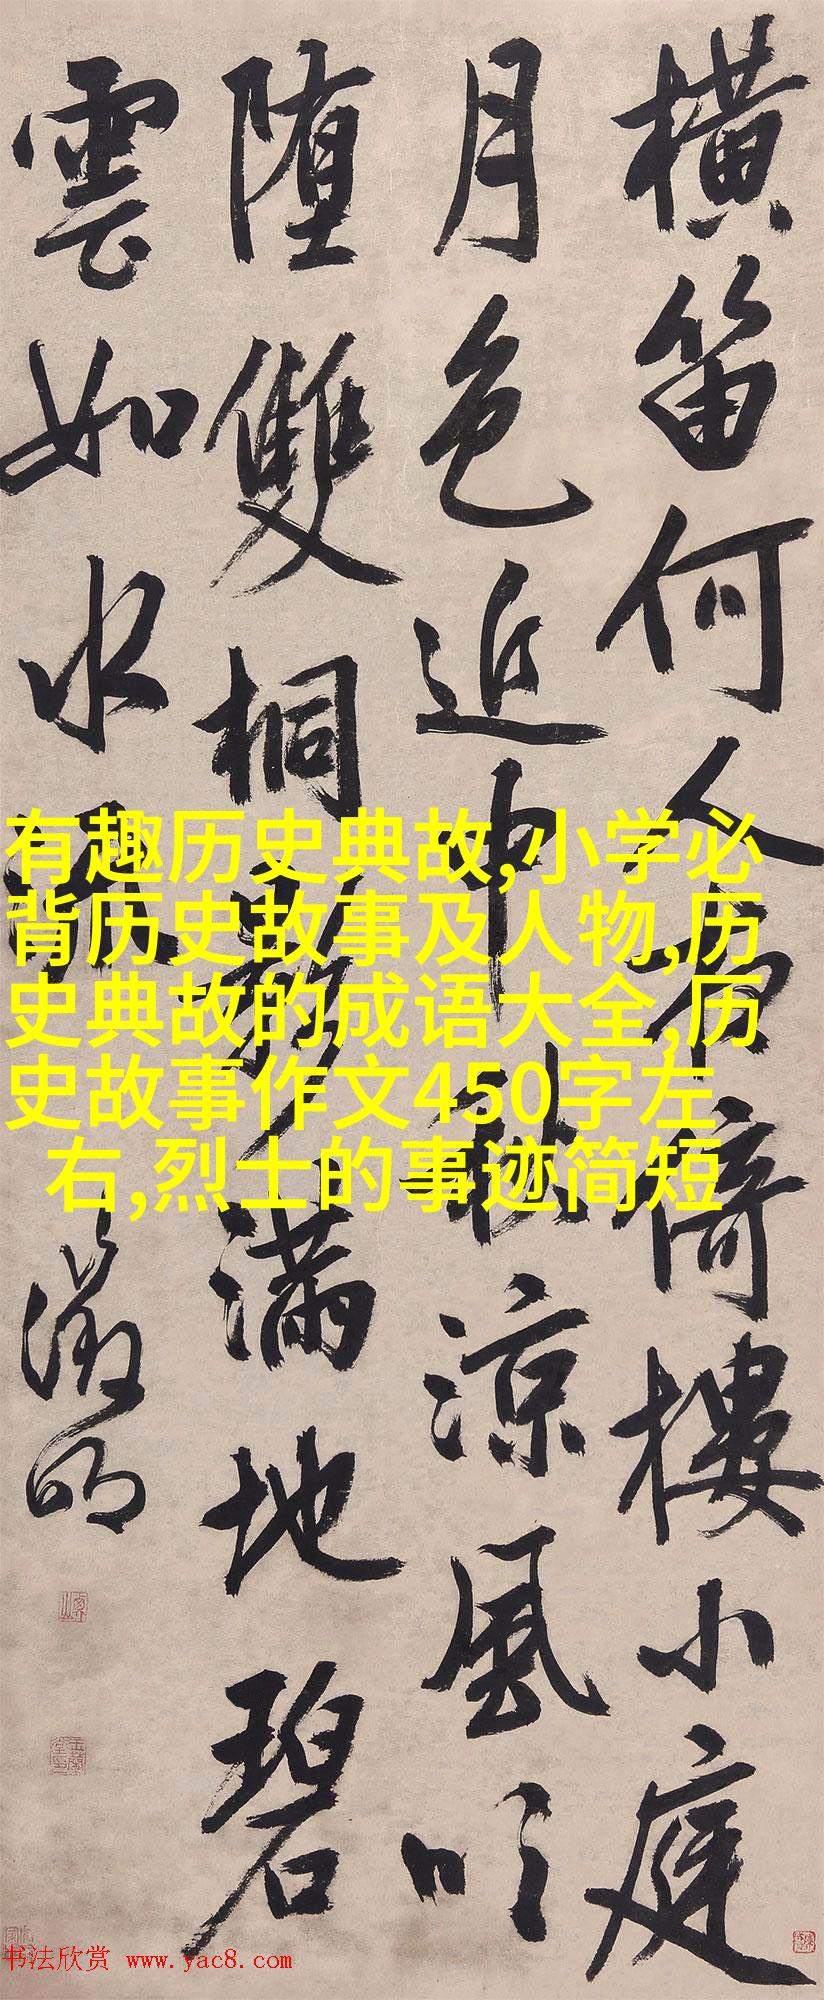 橫笛何人夜倚樓小庭
月色近中秋凉風吹
堕雙桐影滿地碧
雲如水流
徵明
有趣历史典故,小学必
背历史故事及人物,历
史典故的成语大全,历
史故事作文450字左
右,烈士的事迹简短
书法欣赏 www.yac8.com